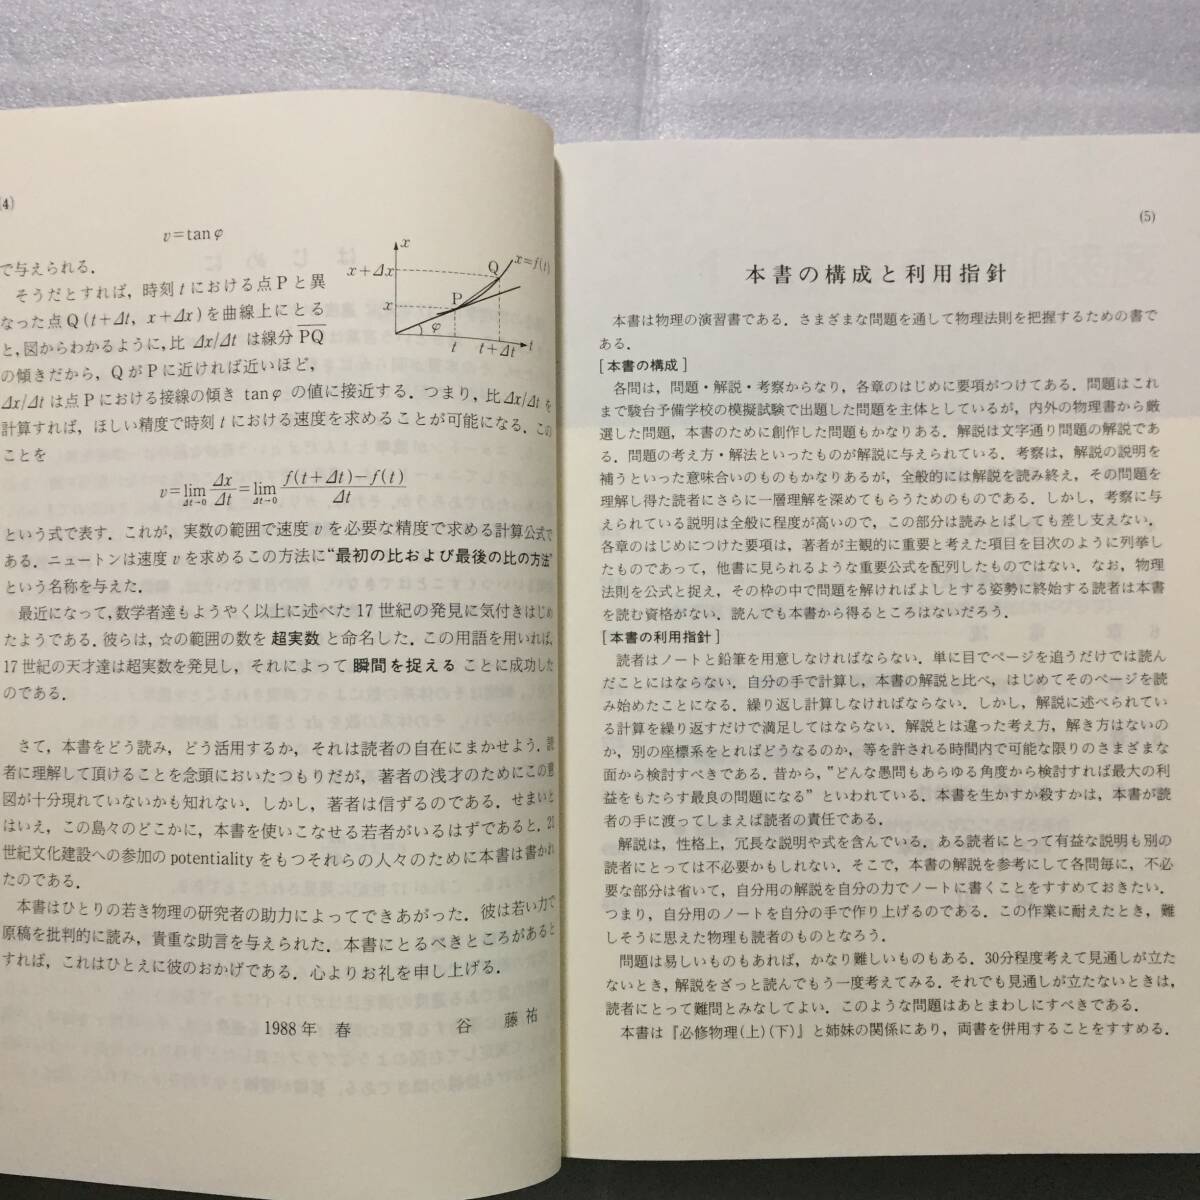 (4)
v=tanφ
で与えられる.
そうだとすれば, 時刻 t における点 P と異
なった点 Q(t+Δt, x+Δx) を曲線上にとる
と, 図からわかるように, 比 Δx/Δt は線分 PQ
の傾きだから, Q が P に近ければ近いほど,
Δx/Δt は点 P における接線の傾き tanφ の値に接近する. つまり, 比 Δx/Δt を
計算すれば, ほしい精度で時刻 t における速度を求めることが可能になる. この
ことを
v=lim Δx/Δt=lim f(t+Δt)−f(t)/Δt
Δt→0 Δt→0
という式で表す. これが, 実数の範囲で速度 v を必要な精度で求める計算公式で
ある. ニュートンは速度 v を求めるこの方法に“最初の比および最後の比の方法”
という名称を与えた.
最近になって, 数学者達もようやく以上に述べた 17 世紀の発見に気付きはじめ
たようである. 彼らは, ☆の範囲の数を 超実数 と命名した. この用語を用いれば,
17 世紀の天才達は超実数を発見し, それによって 瞬間を捉える ことに成功した
のである.
さて, 本書をどう読み, どう活用するか, それは読者の自在にまかせよう. 読
者に理解して頂けることを念頭においたつもりだが, 著者の浅才のためにこの意
図が十分現れていないかも知れない. しかし, 著者は信ずるのである. せまいと
はいえ, この島々のどこかに, 本書を使いこなせる若者がいるはずであると. 21
世紀文化建設への参加の potentiality をもつそれらの人々のために本書は書かれ
たのである.
本書はひとりの若き物理の研究者の助力によってできあがった. 彼は若い力で
原稿を批判的に読み, 貴重な助言を与えられた. 本書にとるべきところがあると
すれば, これはひとえに彼のおかげである. 心よりお礼を申し上げる.
1988年 春 谷 藤 祐
x
x+Δx
Q
x=f(t)
x
P
φ
t
t+Δt
t
(5)
本書の構成と利用指針
本書は物理の演習書である. さまざまな問題を通して物理法則を把握するための書で
ある.
[本書の構成]
各問は, 問題・解説・考察からなり, 各章のはじめに要項がつけてある. 問題はこれ
まで駿台予備学校の模擬試験で出題した問題を主体としているが, 内外の物理書から厳
選した問題, 本書のために創作した問題もかなりある. 解説は文字通り問題の解説であ
る. 問題の考え方・解法といったものが解説に与えられている. 考察は, 解説の説明を
補うといった意味合いのものもかなりあるが, 全般的には解説を読み終え, その問題を
理解し得た読者にさらに一層理解を深めてもらうためのものである. しかし, 考察に与
えられている説明は全般に程度が高いので, この部分は読みとばしても差し支えない.
各章のはじめにつけた要項は, 著者が主観的に重要と考えた項目を目次のように列挙し
たものであって, 他書に見られるような重要公式を配列したものではない. なお, 物理
法則を公式と捉え, その枠の中で問題を解ければよしとする姿勢に終始する読者は本書
を読む資格がない. 読んでも本書から得るところはないだろう.
[本書の利用指針]
読者はノートと鉛筆を用意しなければならない. 単に目でページを追うだけでは読ん
だことにはならない. 自分の手で計算し, 本書の解説と比べ, はじめてそのページを読
み始めたことになる. 繰り返し計算しなければならない. しかし, 解説に述べられてい
る計算を繰り返すだけで満足してはならない. 解説とは違った考え方, 解き方はないの
か, 別の座標系をとればどうなるのか, 等を許される時間内で可能な限りのさまざまな
面から検討すべきである. 昔から, “どんな愚問もあらゆる角度から検討すれば最大の利
益をもたらす最良の問題になる” といわれている. 本書を生かすか殺すかは, 本書が読
者の手に渡ってしまえば読者の責任である.
解説は, 性格上, 冗長な説明や式を含んでいる. ある読者にとって有益な説明も別の
読者にとっては不必要かもしれない. そこで, 本書の解説を参考にして各問毎に, 不必
要な部分は省いて, 自分用の解説を自分の力でノートに書くことをすすめておきたい.
つまり, 自分用のノートを自分の手で作り上げるのである. この作業に耐えたとき, 難
しそうに思えた物理も読者のものとなろう.
問題は易しいものもあれば, かなり難しいものもある. 30分程度考えて見通しが立た
ないとき, 解説をざっと読んでもう一度考えてみる. それでも見通しが立たないときは,
読者にとって難問とみなしてよい. このような問題はあとまわしにすべきである.
本書は『必修物理(上)(下)』と姉妹の関係にあり, 両書を併用することをすすめる.